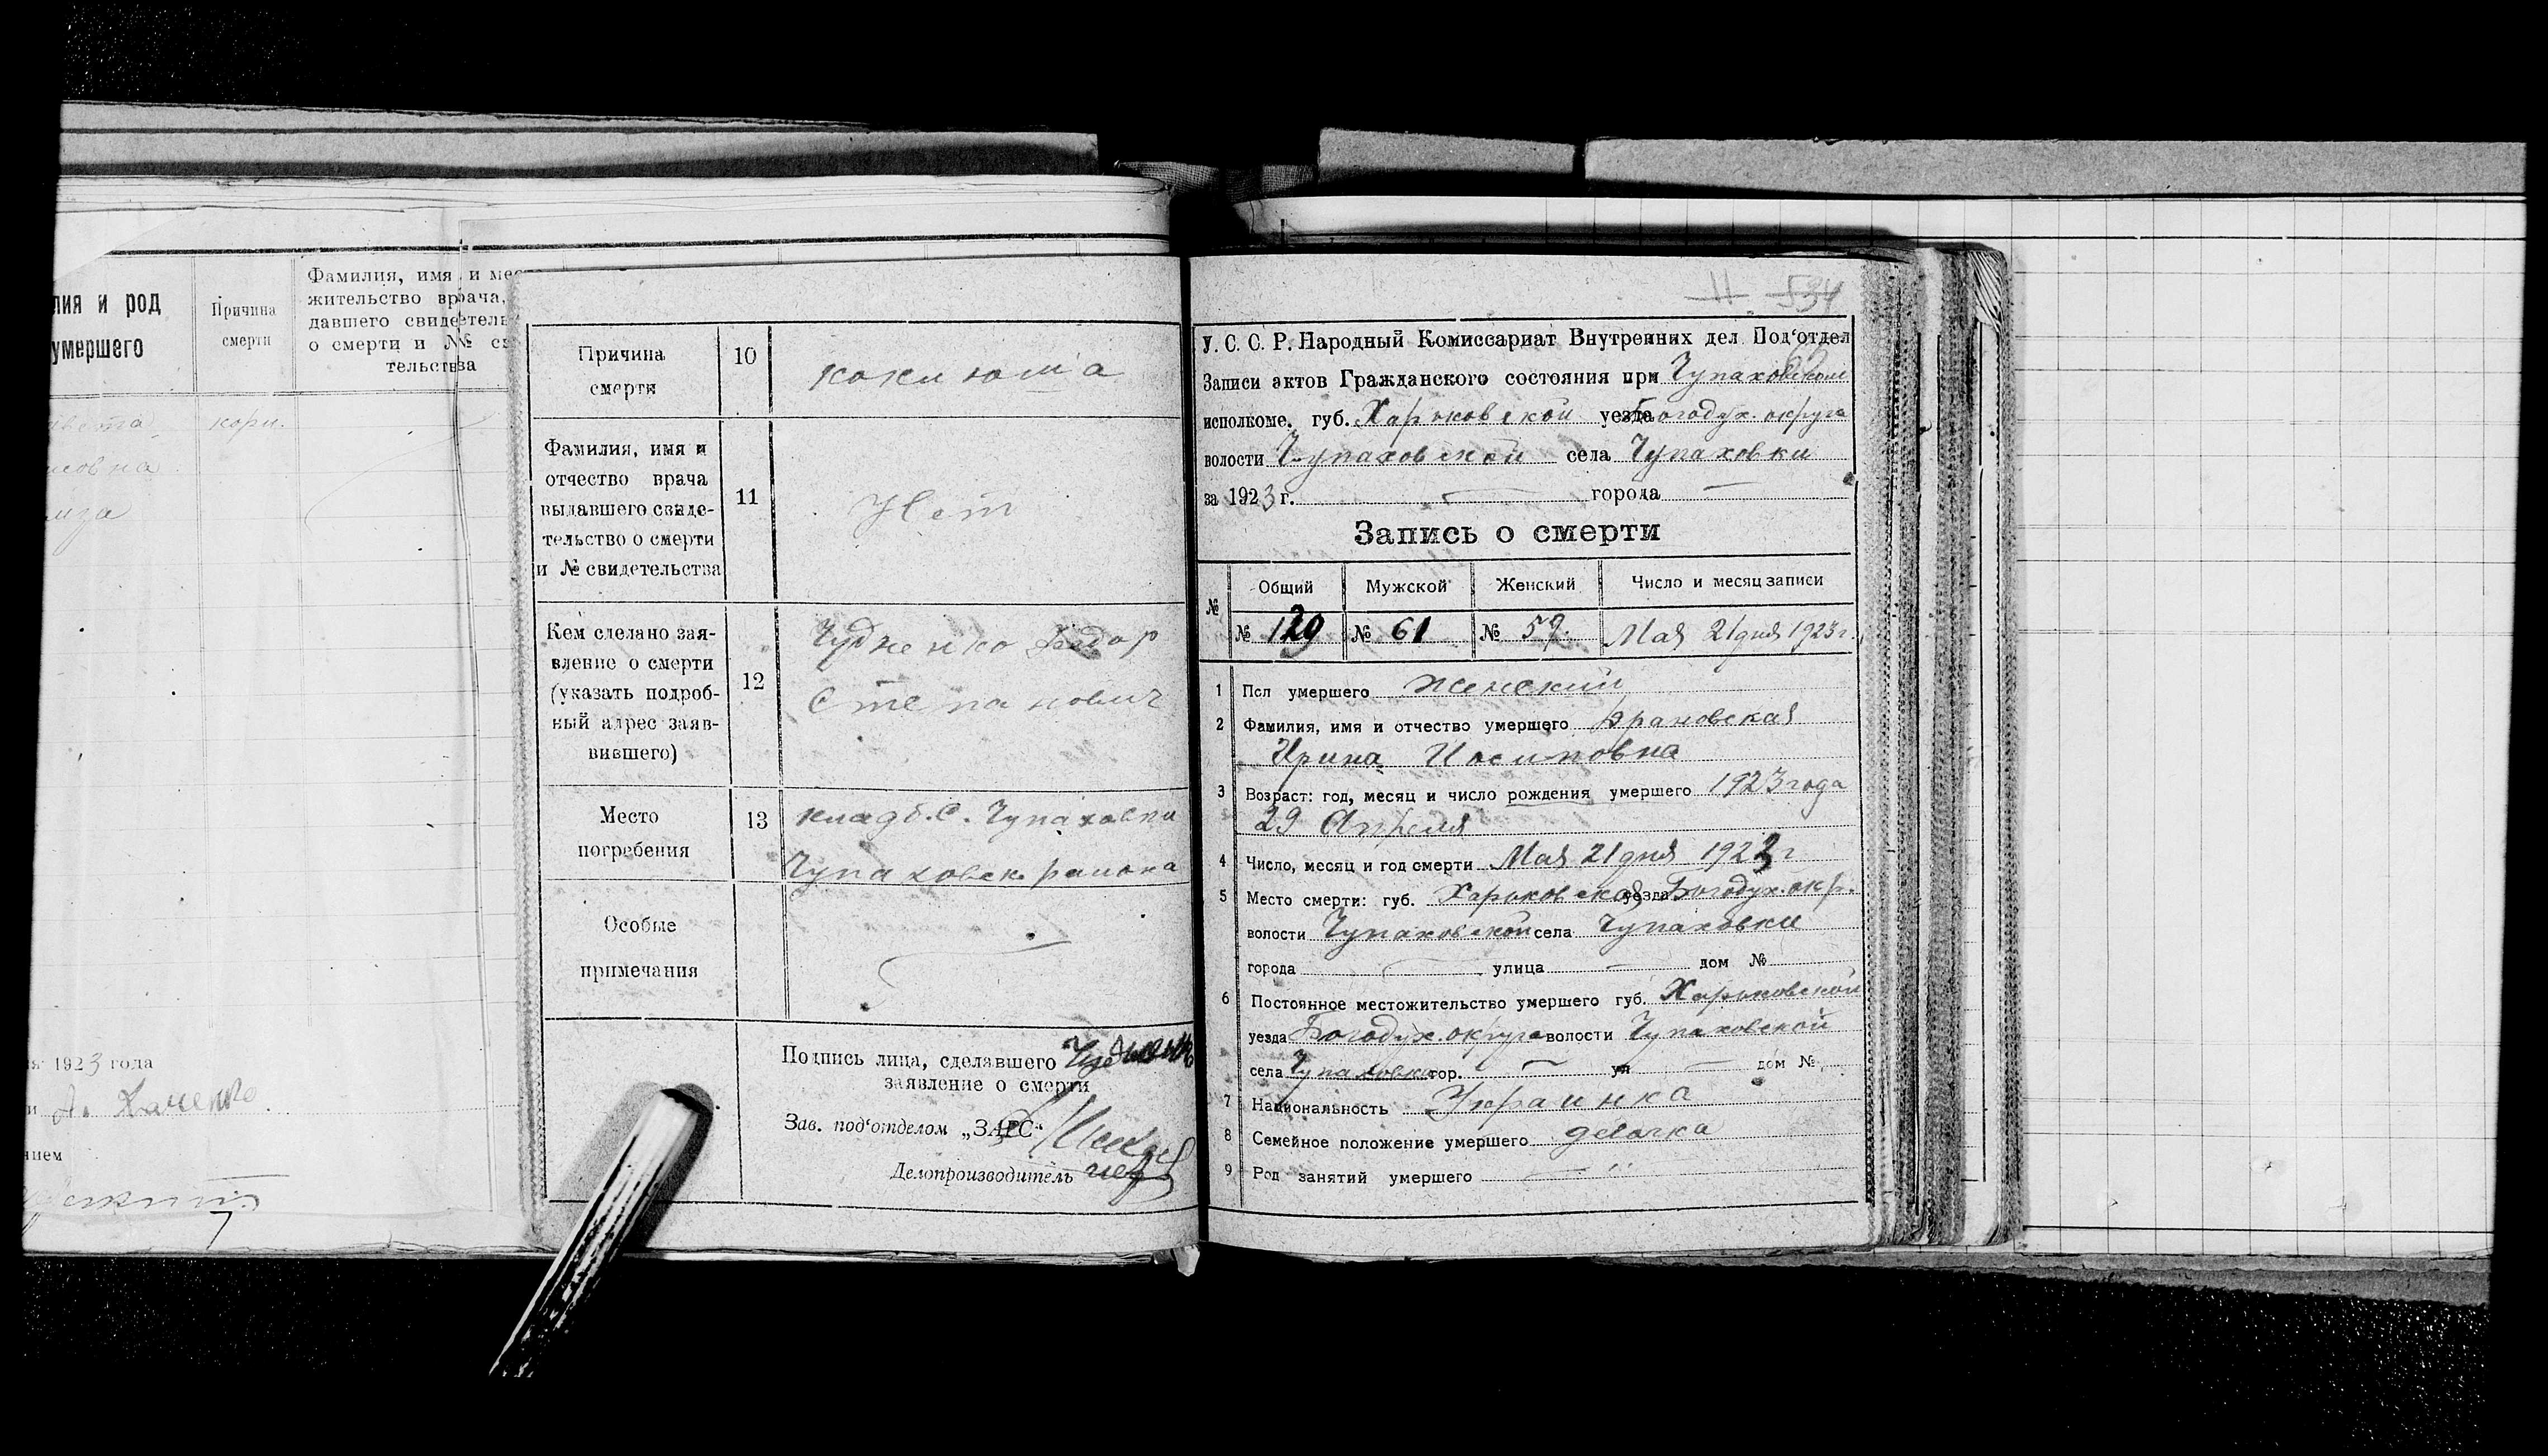 лия и род
умершего
Причина
смерти
Фамилия, имя и мес
жительство врача,
давшего свидетель
о смерти и №№ св
тельства
кори.
овна
1923 года
нием
Причина
смерти
10
коклюша
Фамилия, имя и
отчество врача
выдавшего свиде-
тельство о смерти
и № свидетельства
11
Нет
Кем сделано зая-
вление о смерти
(указать подроб-
ный адрес заяв-
вившего)
12
Чудненко Федор
Степанович
Место
погребения
13
кладб. с. Чупаховки
Чупаховск. района
Особые
примечания
Подпись лица, сделавшего
заявление о смерти
Зав. под'отделом „ЗАГС“
Делопроизводитель
11 534
У. С. С. Р. Народный Комиссариат Внутренних дел Под'отдел
Записи актов Гражданского состояния при Чупаховском
исполкоме, губ. Харьковской уезда Богодух. округа
волости Чупаховской села Чупаховки
за 1923 г. — города —
Запись о смерти
№ Общий Мужской Женский Число и месяц записи
№ 120 № 61 № 59. Мая 21 дня 1923 г.
1 Пол умершего Женский
2 Фамилия, имя и отчество умершего Врановская
Ирина Иосиповна
3 Возраст: год, месяц и число рождения умершего 1923 года
29 Апреля
4 Число, месяц и год смерти Мая 21 дня 1923 г
5 Место смерти: губ. Харьковская уезда Богодух. окр.
волости Чупаховской села Чупаховки
города — улица — дом №
6 Постоянное местожительство умершего губ. Харьковской
уезда Богодух. округа волости Чупаховской
села Чупаховки гор. — ул — дом №
7 Национальность Украинка
8 Семейное положение умершего девочка
9 Род занятий умершего —